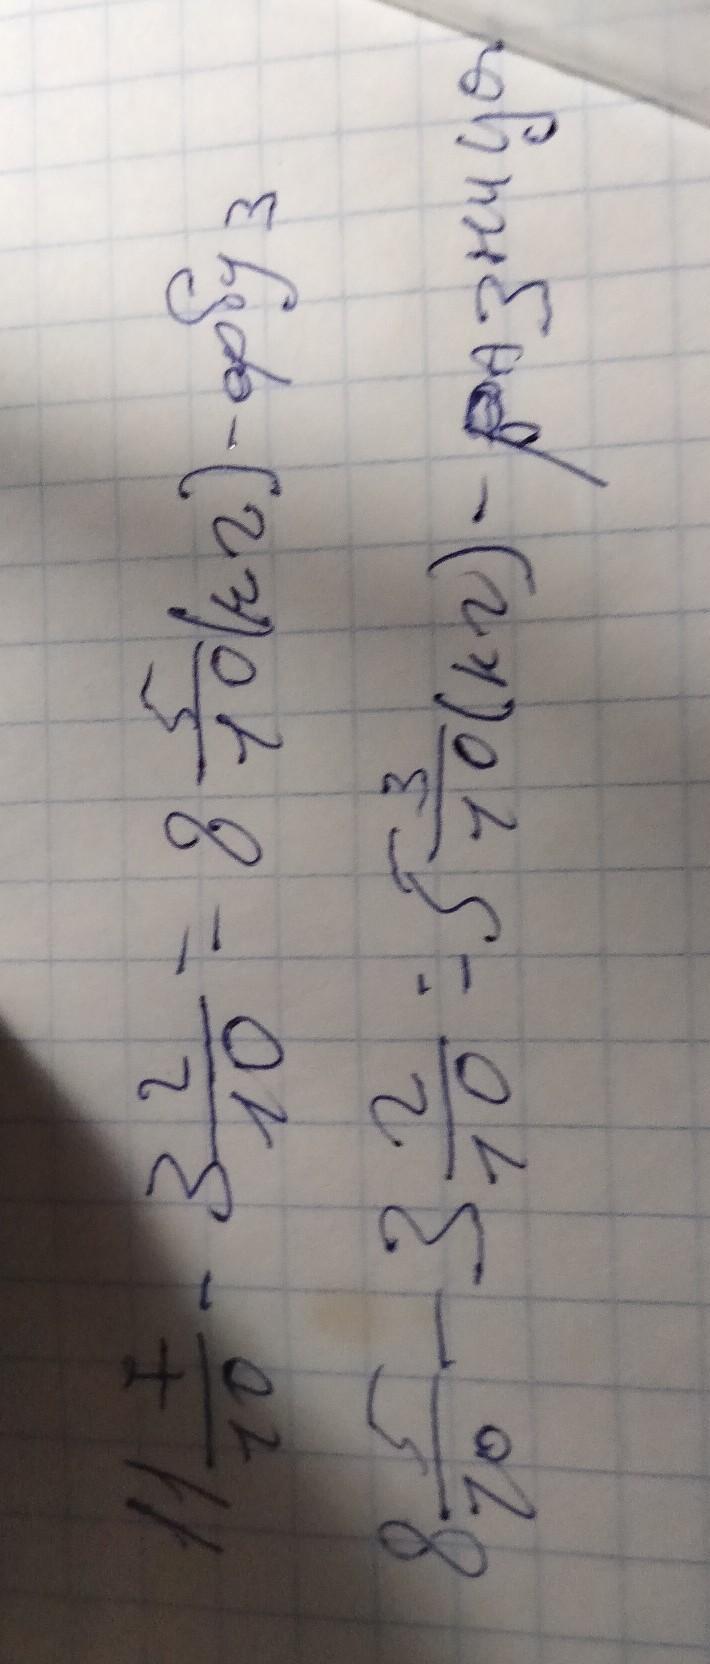 11 7/10 - 3 2/10 = 8 5/10 (кг) - арбуз
8 5/10 - 3 2/10 = 5 3/10 (кг) - разница